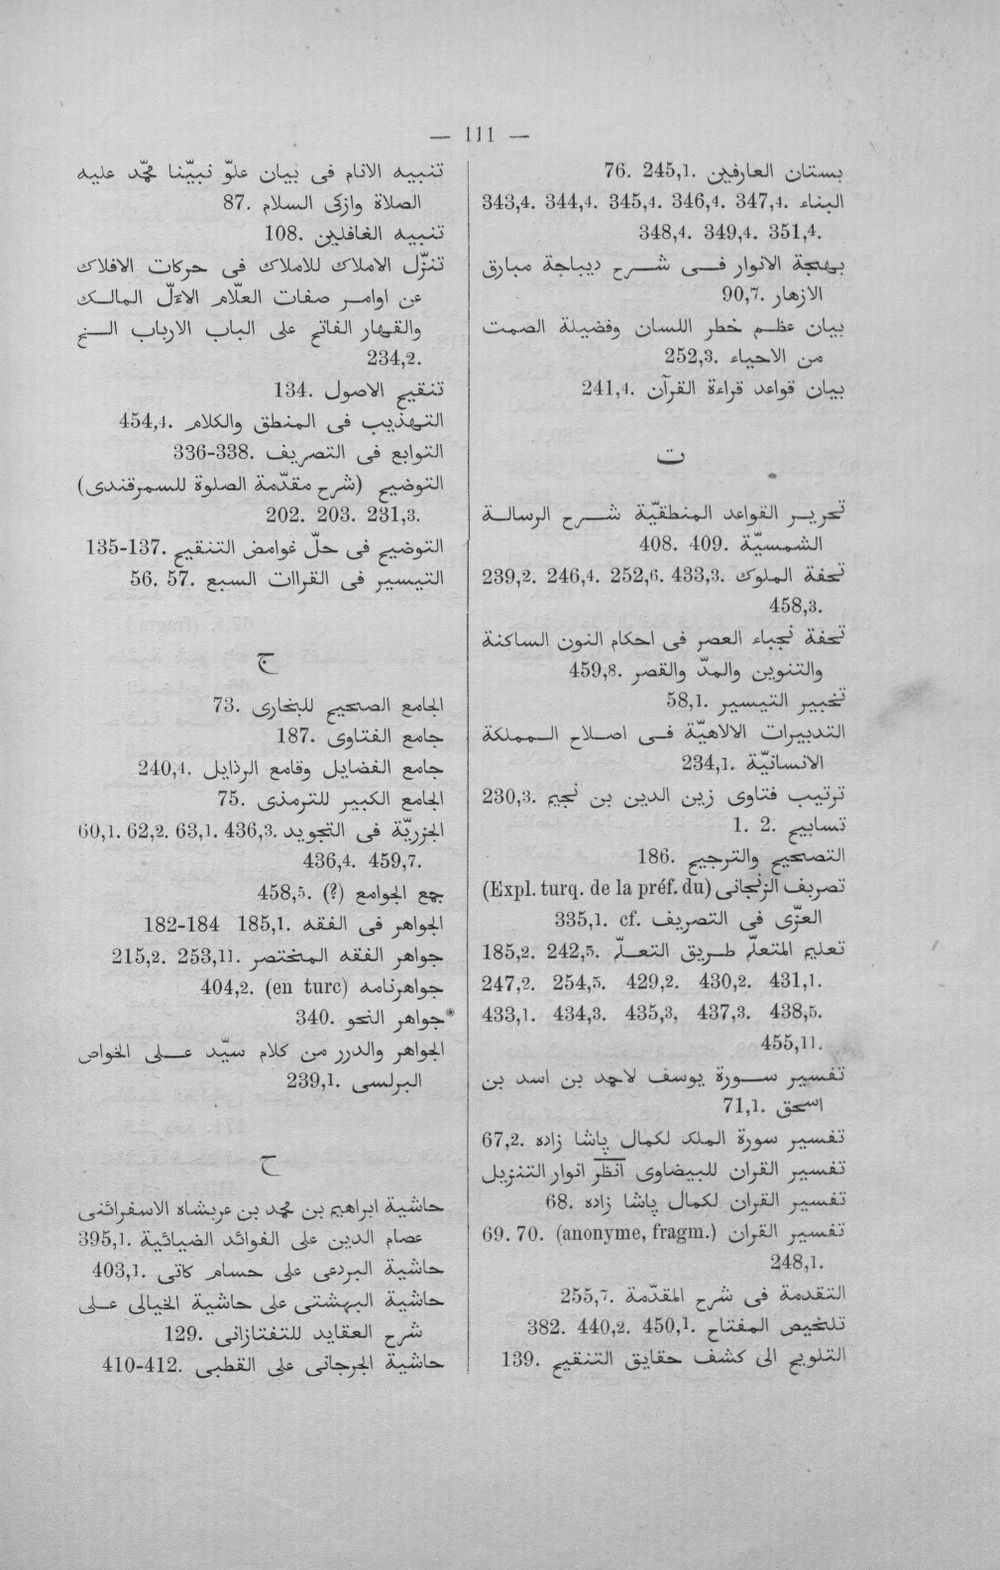 — 111 —
بستان العارفين .76. 245,1
البناء .343,4. 344,4. 345,4. 346,4. 347,4
348,4. 349,4. 351,4.
بهجة الانوار فى شرح ديباجة مبارق
الازهار .90,7
بيان عظم خطر اللسان وفضيلة الصمت
من الاحياء .252,3
بيان قواعد قراءة القرآن .241,4
ت
تحرير القواعد المنطقيّة شرح الرسالة
الشمسيّة .408. 409
تحفة الملوك .239,2. 246,4. 252,6. 433,3
458,3.
تحفة نجباء العصر فى احكام النون الساكنة
والتنوين والمدّ والقصر .459,8
تحبير التيسير .58,1
التدبيرات الالاهيّة فى اصلاح المملكة
الانسانيّة .234,1
ترتيب فتاوى زين الدين بن نجيم .230,3
تسابيح .1. 2
التصحيح والترجيح .186
تصريف الزنجانى (Expl. turq. de la préf. du)
العزّى فى التصريف .335,1. cf
تعليم المتعلّم طريق التعلّم .185,2. 242,5
247,2. 254,5. 429,2. 430,2. 431,1.
433,1. 434,3. 435,3, 437,3. 438,5.
455,11.
تفسير سورة يوسف لاحمد بن اسد بن
اسحق .71,1
تفسير سورة الملك لكمال پاشا زاده .67,2
تفسير القران للبيضاوى انظر انوار التنزيل
تفسير القران لكمال پاشا زاده .68
تفسير القران (anonyme, fragm.) .69. 70
248,1.
التقدمة فى شرح المقدّمة .255,7
تلخيص المفتاح .382. 440,2. 450,1
التلويح الى كشف حقايق التنقيح .139
تنبيه الانام فى بيان علوّ نبيّنا محمّد عليه
الصلاة وازكى السلام .87
تنبيه الغافلين .108
تنزّل الاملاك للاملاك فى حركات الافلاك
عن اوامر صفات العلّام الاءلّ المالك
والقهار الفاتح على الباب الارباب الخ
234,2.
تنقيح الاصول .134
التهذيب فى المنطق والكلام .454,4
التوابع فى التصريف .336-338
التوضيح (شرح مقدّمة الصلوة للسمرقندى)
202. 203. 231,3.
التوضيح فى حلّ غوامض التنقيح .135-137
التيسير فى القراات السبع .56. 57
ج
الجامع الصحيح للبخارى .73
جامع الفتاوى .187
جامع الفضايل وقامع الرذايل .240,4
الجامع الكبير للترمذى .75
الجزريّة فى التجويد .60,1. 62,2. 63,1. 436,3
436,4. 459,7.
جمع الجوامع (?) .458,5
الجواهر فى الفقه .182-184 185,1
جواهر الفقه المختصر .215,2. 253,11
جواهرنامه (en turc) .404,2
*جواهر النحو .340
الجواهر والدرر من كلام سيّد على الخواص
البرلسى .239,1
ح
حاشية ابراهيم بن محمد بن عربشاه الاسفرائنى
عصام الدين على الفوائد الضيائية .395,1
حاشية البردعى على حسام كاتى .403,1
حاشية البهشتى على حاشية الخيالى على
شرح العقايد للتفتازانى .129
حاشية الجرجانى على القطبى .410-412